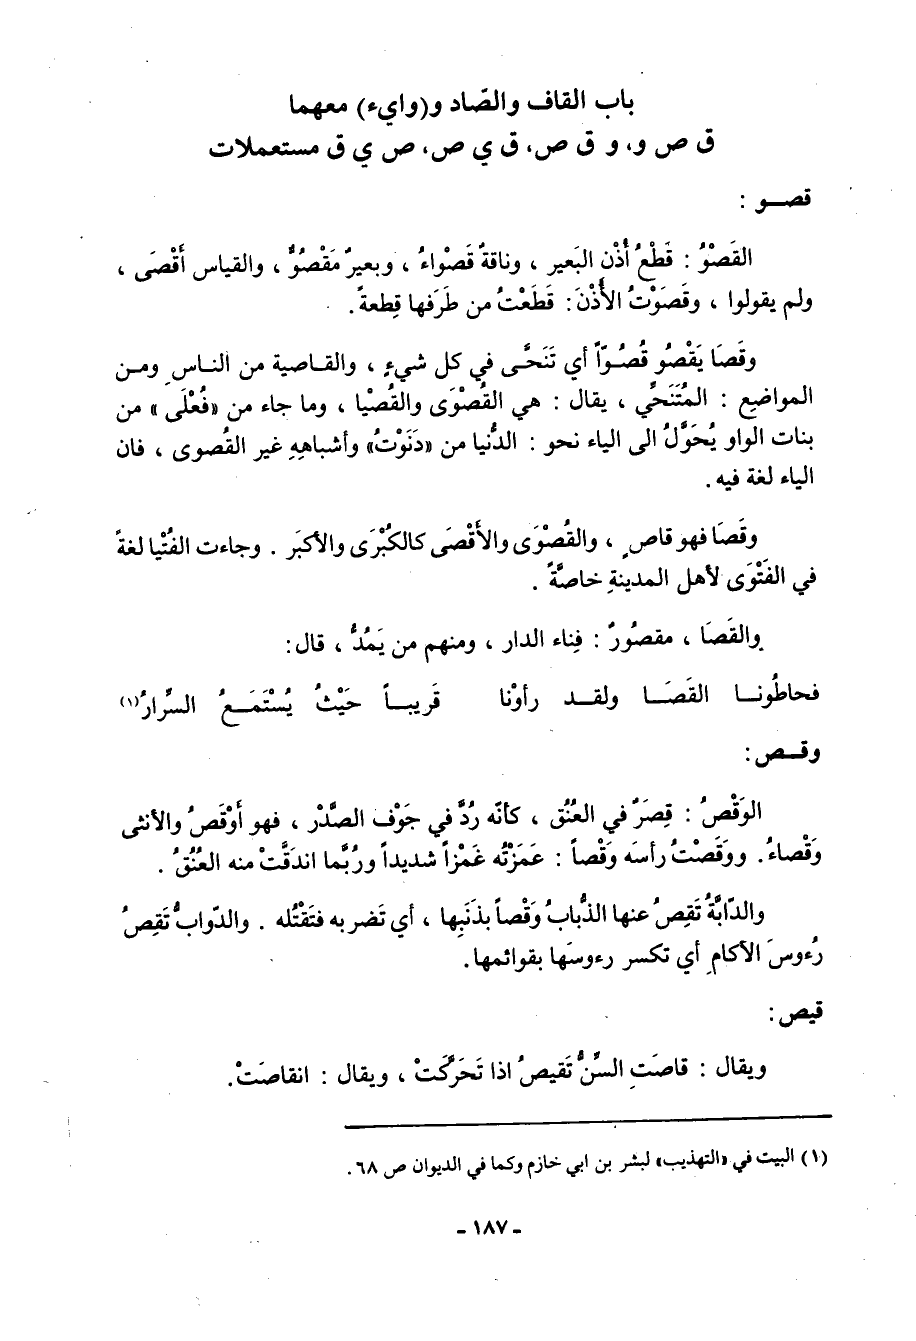 باب القاف والصّاد و(وايء) معهما
ق ص و، و ق ص، ق ي ص، ص ي ق مستعملات
قصو :
القَصْوُ : قَطْعُ أُذْن البَعير ، وناقةٌ قَصْواءُ ، وبعيرٌ مَقْصُوٌّ ، والقياس أَقْصَى ،
ولم يقولوا ، وقَصَوْتُ الأُذْنَ : قَطَعْتُ من طَرَفها قِطعةً .
وقَصَا يَقْصُو قُصُوّاً أي تَنَحَّى في كل شيءٍ ، والقاصية من الناسِ ومن
المواضع : المُتَنَحِّي ، يقال : هي القُصْوَى والقُصْيا ، وما جاء من «فُعْلَى» من
بنات الواو يُحَوَّلُ الى الياء نحو : الدُّنيا من «دَنَوْتُ» وأشباههِ غير القُصوى ، فان
الياء لغة فيه .
وقَصَا فهو قاصٍ ، والقُصْوَى والأَقْصَى كالكُبْرَى والأكبَر . وجاءت الفُتْيا لغةً
في الفَتْوَى لأهل المدينةِ خاصَّةً .
والقَصَا ، مقصُورٌ : فِناء الدار ، ومنهم من يَمُدُّ ، قال :
فحاطُونا القَصَا ولقد رأوْنا قَريباً حَيْثُ يُسْتَمَعُ السِّرارُ(١)
وقص :
الوَقْصُ : قِصَرٌ في العُنُق ، كأنّه رُدَّ في جَوْف الصَّدْر ، فهو أَوْقَصُ والأنثى
وَقْصاءُ . ووقَصْتُ رأسَه وَقْصاً : غَمَزْتُه غَمْزاً شديداً ورُبَّما اندَقَّتْ منه العُنُقُ .
والدّابَّةُ تَقِصُ عنها الذُّبابُ وَقْصاً بذَنَبِها ، أي تَضربه فتَقْتُله . والدّوابُّ تَقِصُ
رُءوسَ الأكامِ أي تكسر رءوسَها بقوائمها .
قيص :
ويقال : قاصَتِ السِّنُّ تَقيصُ اذا تَحَرَّكَتْ ، ويقال : انقاصَتْ .
(١) البيت في «التهذيب» لبشر بن ابي خازم وكما في الديوان ص ٦٨ .
- ١٨٧ -